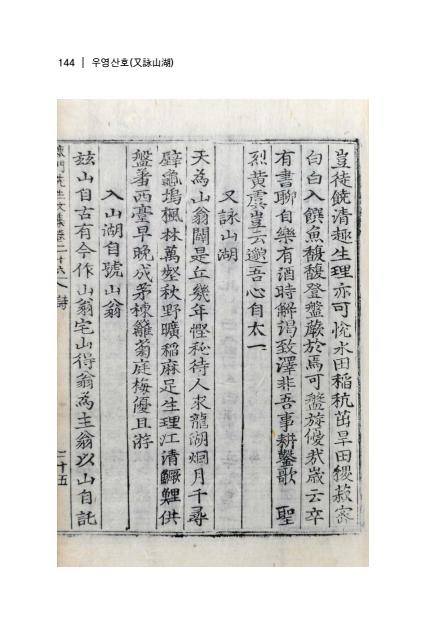 144 | 우영산호(又詠山湖)
豈徒饒清趣生理亦可悅水田稻秔茁旱田稷菽密
白白入饌魚馥馥登盤蕨於焉可盤旋優哉歲云卒
有書聊自樂有酒時解渴致澤非吾事耕鑿歌 聖
烈黃虞豈云邈吾心自太一
又詠山湖
天為山翁闢是丘幾年慳秘待人求龍湖烟月千尋
壁龜塢楓林萬壑秋野曠稻麻足生理江清鱖鯉供
盤羞西臺早晚成茅棟籬菊庭梅優且游
入山湖自號山翁
玆山自古有今作山翁宅山得翁為主翁以山自託
先生文集卷二十六 詩 二十五